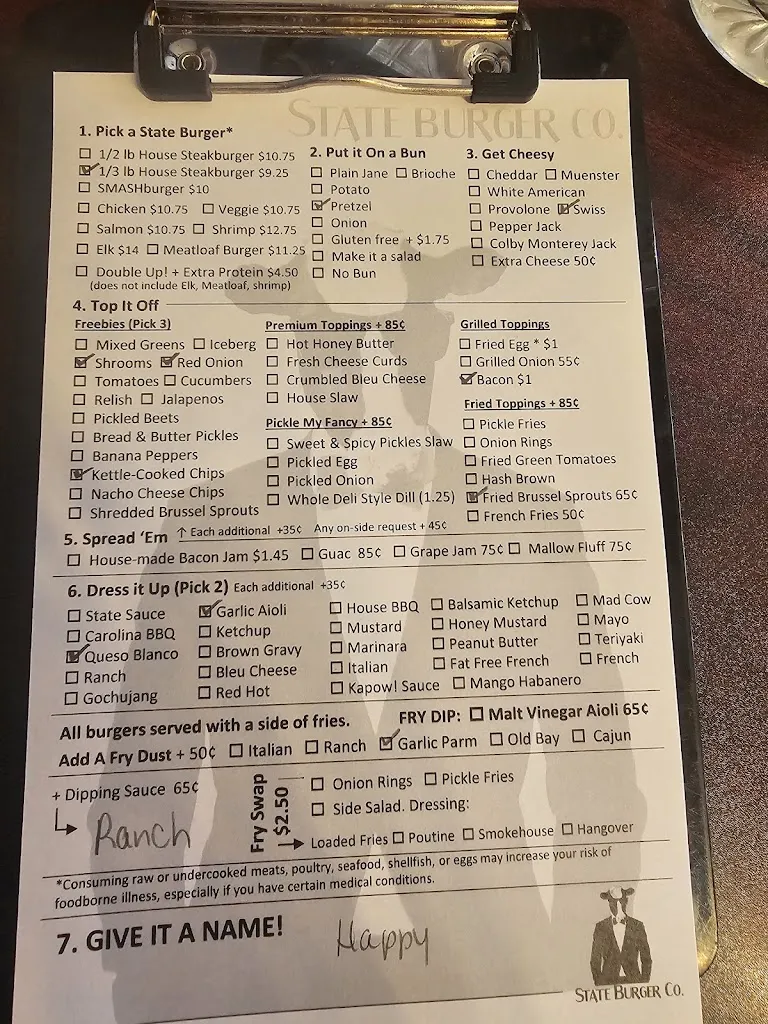 STATE BURGER CO.
1. Pick a State Burger*
☐ 1/2 lb House Steakburger $10.75
☑ 1/3 lb House Steakburger $9.25
☐ SMASHburger $10
☐ Chicken $10.75 ☐ Veggie $10.75
☐ Salmon $10.75 ☐ Shrimp $12.75
☐ Elk $14 ☐ Meatloaf Burger $11.25
☐ Double Up! + Extra Protein $4.50
(does not include Elk, Meatloaf, shrimp)
2. Put it On a Bun
☐ Plain Jane ☐ Brioche
☐ Potato
☑ Pretzel
☐ Onion
☐ Gluten free + $1.75
☐ Make it a salad
☐ No Bun
3. Get Cheesy
☐ Cheddar ☐ Muenster
☐ White American
☐ Provolone ☑ Swiss
☐ Pepper Jack
☐ Colby Monterey Jack
☐ Extra Cheese 50¢
4. Top It Off
Freebies (Pick 3)
☐ Mixed Greens ☐ Iceberg
☑ Shrooms ☑ Red Onion
☐ Tomatoes ☐ Cucumbers
☐ Relish ☐ Jalapenos
☐ Pickled Beets
☐ Bread & Butter Pickles
☐ Banana Peppers
☑ Kettle-Cooked Chips
☐ Nacho Cheese Chips
☐ Shredded Brussel Sprouts
Premium Toppings + 85¢
☐ Hot Honey Butter
☐ Fresh Cheese Curds
☐ Crumbled Bleu Cheese
☐ House Slaw
Pickle My Fancy + 85¢
☐ Sweet & Spicy Pickles Slaw
☐ Pickled Egg
☐ Pickled Onion
☐ Whole Deli Style Dill (1.25)
Grilled Toppings
☐ Fried Egg * $1
☐ Grilled Onion 55¢
☑ Bacon $1
Fried Toppings + 85¢
☐ Pickle Fries
☐ Onion Rings
☐ Fried Green Tomatoes
☐ Hash Brown
☑ Fried Brussel Sprouts 65¢
☐ French Fries 50¢
5. Spread ‘Em ↑ Each additional +35¢ Any on-side request + 45¢
☐ House-made Bacon Jam $1.45 ☐ Guac 85¢ ☐ Grape Jam 75¢ ☐ Mallow Fluff 75¢
6. Dress it Up (Pick 2) Each additional +35¢
☐ State Sauce
☐ Carolina BBQ
☑ Queso Blanco
☐ Ranch
☐ Gochujang
☑ Garlic Aioli
☐ Ketchup
☐ Brown Gravy
☐ Bleu Cheese
☐ Red Hot
☐ House BBQ
☐ Mustard
☐ Marinara
☐ Italian
☐ Kapow! Sauce
☐ Balsamic Ketchup
☐ Honey Mustard
☐ Peanut Butter
☐ Fat Free French
☐ Mango Habanero
☐ Mad Cow
☐ Mayo
☐ Teriyaki
☐ French
All burgers served with a side of fries. FRY DIP: ☐ Malt Vinegar Aioli 65¢
Add A Fry Dust + 50¢ ☐ Italian ☐ Ranch ☑ Garlic Parm ☐ Old Bay ☐ Cajun
+ Dipping Sauce 65¢
Ranch
Fry Swap
$2.50
☐ Onion Rings ☐ Pickle Fries
☐ Side Salad. Dressing:
Loaded Fries ☐ Poutine ☐ Smokehouse ☐ Hangover
*Consuming raw or undercooked meats, poultry, seafood, shellfish, or eggs may increase your risk of
foodborne illness, especially if you have certain medical conditions.
7. GIVE IT A NAME! Happy
STATE BURGER CO.